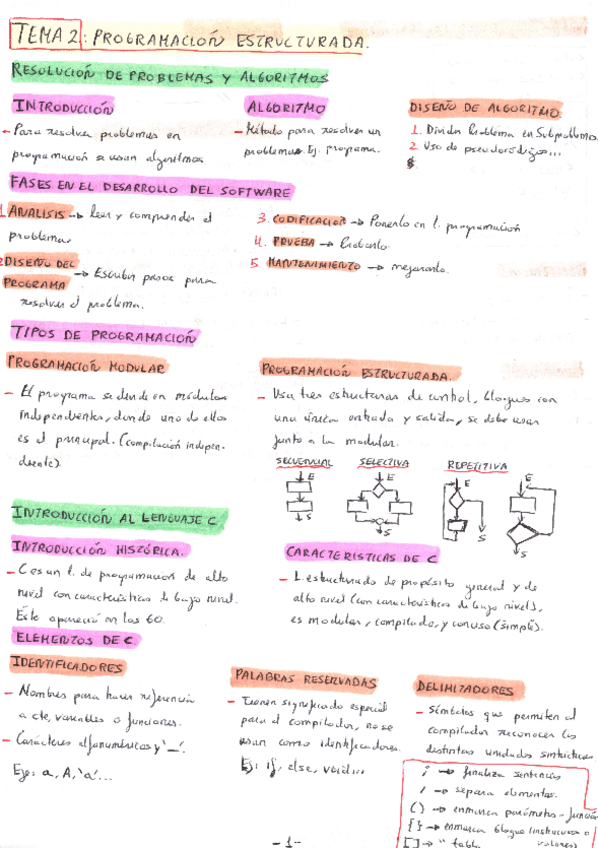 TEMA 2: PROGRAMACIÓN ESTRUCTURADA.
RESOLUCIÓN DE PROBLEMAS Y ALGORITMOS
INTRODUCCIÓN
- Para resolver problemas en
programación se usan algoritmos
ALGORITMO
- Método para resolver un
problema. Ej. programa.
DISEÑO DE ALGORITMO.
1. Dividir Problema en Subproblemas
2. Uso de pseudocódigos...
FASES EN EL DESARROLLO DEL SOFTWARE
1. ANALISIS → leer y comprender el
problema.
2. DISEÑO DEL
PROGRAMA → Escribir pasos para
resolver el problema.
3. CODIFICACION → Ponerlo en l. programación
4. PRUEBA → Probarlo.
5. MANTENIMIENTO → mejorarlo.
TIPOS DE PROGRAMACIÓN
PROGRAMACIÓN MODULAR
- El programa se divide en módulos
independientes, donde uno de ellos
es el principal. (compilación indepen-
diente).
PROGRAMACIÓN ESTRUCTURADA.
- Usa tres estructuras de control, bloques con
una única entrada y salida, se debe usar
junto a la modular.
SECUENCIAL SELECTIVA REPETITIVA
E E E E
S S S S
INTRODUCCIÓN AL LENGUAJE C
INTRODUCCIÓN HISTÓRICA.
- C es un l. de programación de alto
nivel con características de bajo nivel.
Este apareció en los 60.
CARACTERISTICAS DE C
- L. estructurado de propósito general y de
alto nivel (con características de bajo nivel),
es modular, compilado, y conciso (simple).
ELEMENTOS DE C
IDENTIFICADORES
- Nombres para hacer referencia
a cte, variables o funciones.
- Carácteres alfanuméricos y '_'.
Eje: a, A, 'a'...
PALABRAS RESERVADAS
- Tienen significado especial
para el compilador, no se
usan como identificadores.
Ej: if, else, void...
DELIMITADORES
- Símbolos que permiten al
compilador reconocer las
distintas unidades sintácticas
; → finaliza sentencias
, → separa elementos.
( ) → enmarca parámetros - función
{ } → enmarca bloque (instruccion o
valores)
[ ] → " tabla
- 1 -